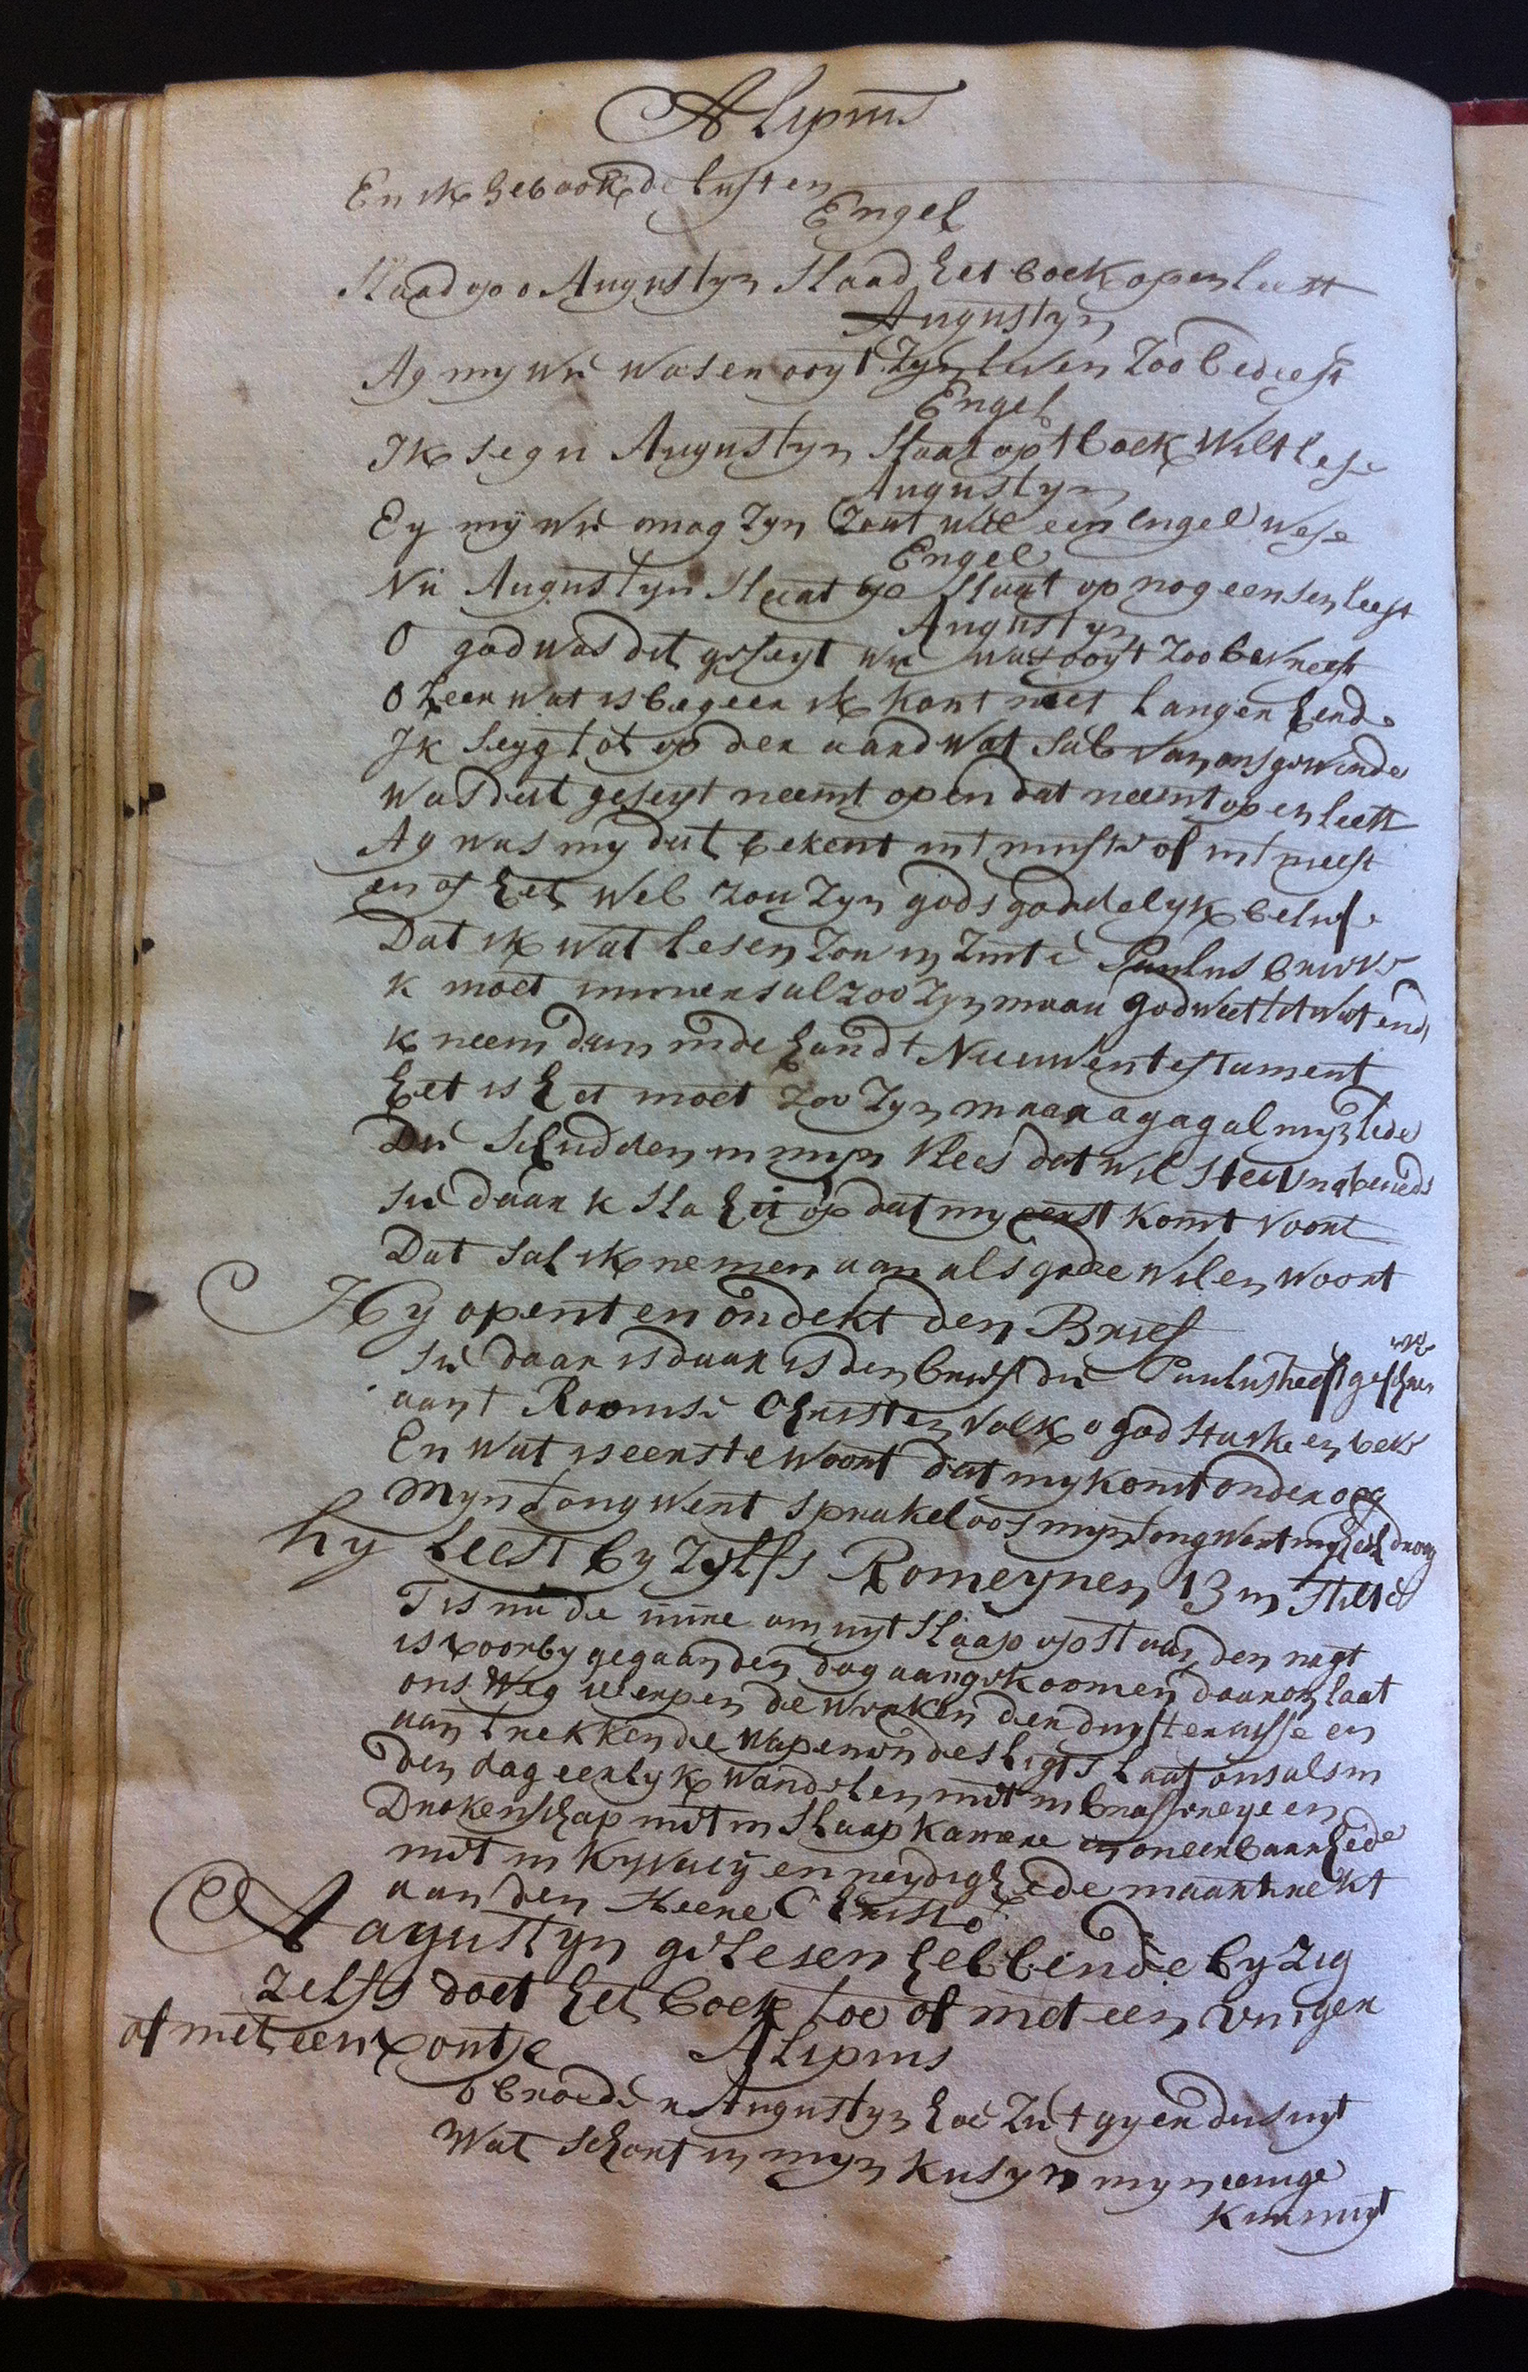 Alipius
En ik heb ook de lusten
Engel
Staad op o Augustyn staad het boek open leest
Augustyn
Ag my wie was en ooyt zyn leven zoo bedeest
Engel
Ik seg u Augustyn staat op t boek wilt lese
Augustyn
Ey my wie mag zyn zout wel een engel wese
Engel
Nu Augustyn staat op staat op nog eens en leest
Augustyn
O god was dit geseyt wie was ooyt zoo bevreest
O heer wat is begeer ik kont niet langer
Ik seyg tot op der aard wat sal van ons gewerde
Was dit geseyt neemt op en dat neemt op en leest
Ag was my dit bekent int minste of int meest
en of het wel zou zyn gods goddelyk belief
Dat ik wat lesen zou in zinte Paulus brieve
k moet immers al zoo zyn maar god weet het
k neem dan in de hand t Nieuwen testament
het is het moet zoo zyn maar ag ag al myn lede
Die schudden in myn vlees dat wil
sie daar k sla het op dat my eerst komt voort
Dat sal ik nemen aan als gode wil en woort
Hy opent en ondekt den Brief
sie daar is daar is den brief die Paulus heeft geschreven
aant Roomse Christen volk o god sta ik en beve
En wat is eerste woort dat my komt onder oog
Myn tong wert sprakeloos myn tong wert my heel droog
hy leest by zelfs Romeynen 13 in stilte
Tis nu de uure om uyt slaap op staan den nagt
is voorby gegaan den dag aangekoomen daarom laat
ons weg werpen de werken der duysternisse en
aan trekken de wapenen des ligts laat ons als in
den dag eerlyk wandelen niet in brassereye en
Drokenschap niet in slaap kamere en oneerbaarhede
niet in kyvaeij en neydighede maar trekt
aan den Heere Christo
Aagustyn gelesen hebbende by zig
zelfs doet het boek toe of met een vinger
of met een pontje
Alipius
o broeder Augustyn hoe ziet gy er dus uyt
Wat schort u myn kusyn myn eenige